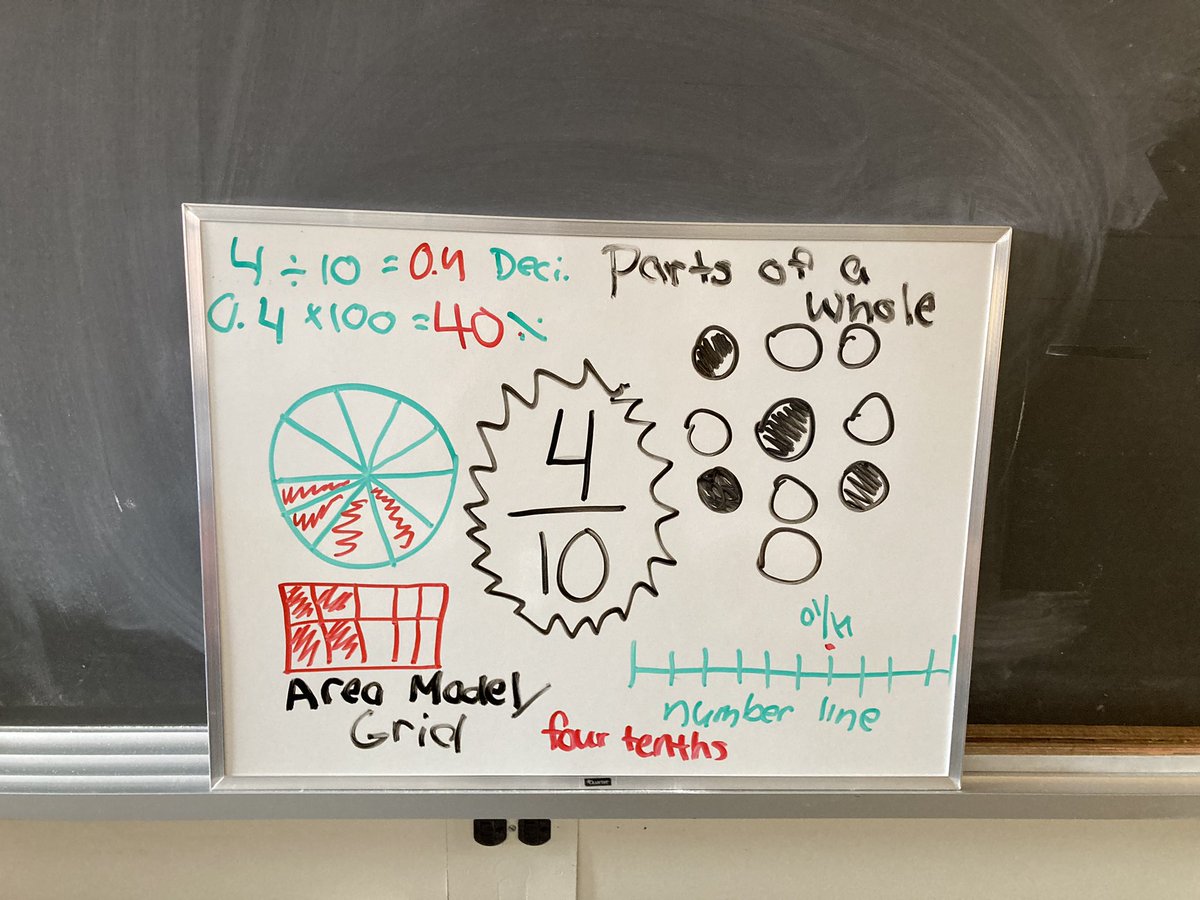 4 ÷ 10 = 0.4 Deci.
0.4 x 100 = 40%
Parts of a
whole
4
10
Area Model/
Grid
four tenths
number line
Quartet